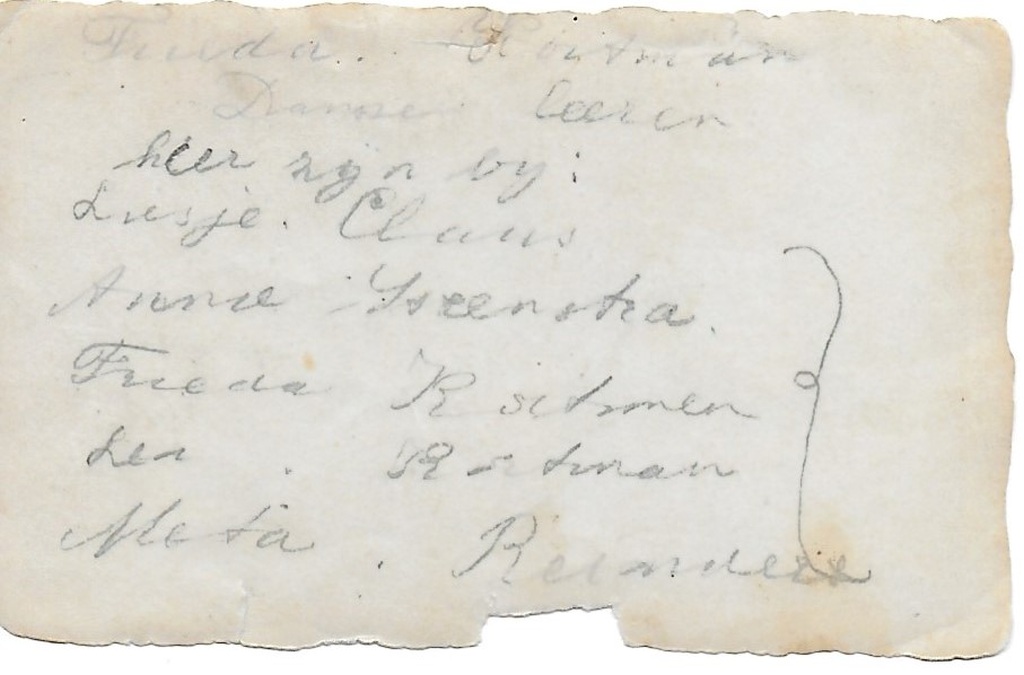 Frieda. Rostman
Danse leerin
hier zijn by:
Liesje. Claus
Annie Yseenstra.
Frieda Rostmen
Leo . Rostman
Meta . Reinders